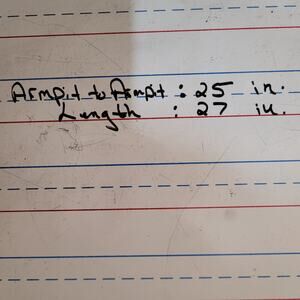 Armpit to Armpit : 25 in.
Length : 27 in.